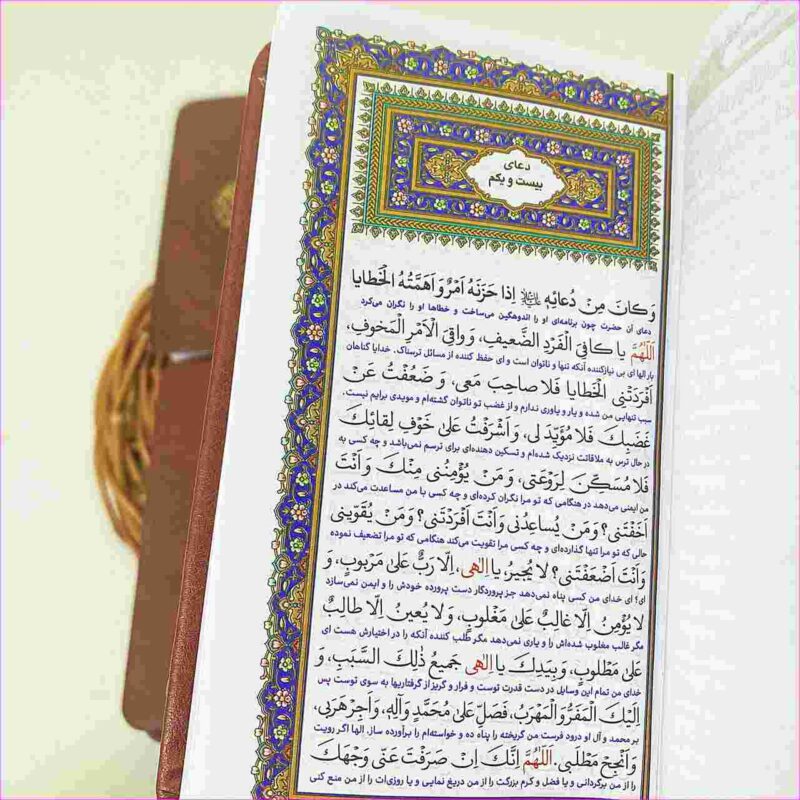 دعای
بیست و یکم
وَكانَ مِنْ دُعائِهِ اِذا حَزَنَهُ اَمْرٌ وَ اَهَمَّتْهُ الْخَطايا
دعای آن حضرت چون برنامه‌ای او را اندوهگین می‌ساخت و خطاها او را نگران می‌کرد
اَللّٰهُمَّ يا كافِيَ الْفَرْدِ الضَّعيفِ، وَ واقِيَ الْاَمْرِ الْمَخوفِ،
بارالها ای بی نیازکننده آنکه تنها و ناتوان است و ای حفظ کننده از مسائل ترسناک. خدایا گناهان
اَفْرَدَتْنِى الْخَطايا فَلا صاحِبَ مَعى، وَ ضَعُفْتُ عَنْ
سبب تنهایی من شده و یار و یاوری ندارم و از غضب تو ناتوان گشته‌ام و مویدی برایم نیست.
غَضَبِكَ فَلا مُؤَيِّدَ لى، وَ اَشْرَفْتُ عَلىٰ خَوْفِ لِقائِكَ
در حال ترس به ملاقاتت نزدیک شده‌ام و تسکین دهنده‌ای برای ترسم نمی‌باشد و چه کسی به
فَلا مُسَكِّنَ لِرَوْعَتى، وَ مَنْ يُؤْمِنُنى مِنْكَ وَ اَنْتَ
من ایمنی می‌دهد در هنگامی که تو مرا نگران کرده‌ای و چه کسی با من مساعدت می‌کند در
اَخَفْتَنى؟ وَ مَنْ يُساعِدُنى وَ اَنْتَ اَفْرَدْتَنى؟ وَ مَنْ يُقَوّينى
حالی که تو مرا تنها گذارده‌ای و چه کسی مرا تقویت می‌کند هنگامی که تو مرا تضعیف نموده
وَ اَنْتَ اَضْعَفْتَنى؟ لا يُجيرُ، يا اِلٰهى، اِلّا رَبٌّ عَلىٰ مَرْبوبٍ، وَ
ای؟ ای خدای من کسی پناه نمی‌دهد جز پروردگار دست پرورده خودش را و ایمن نمی‌سازد
لا يُؤْمِنُ اِلّا غالِبٌ عَلىٰ مَغْلوبٍ، وَ لا يُعينُ اِلّا طالِبٌ
مگر غالب مغلوب شده‌اش را و یاری نمی‌دهد مگر طلب کننده آنکه را در اختیارش هست ای
عَلىٰ مَطْلوبٍ، وَ بِيَدِكَ يا اِلٰهى جَميعُ ذٰلِكَ السَّبَبِ، وَ
خدای من تمام این وسایل در دست قدرت توست و فرار و گریز از گرفتاریها به سوی توست پس
اِلَيْكَ الْمَفَرُّ وَ الْمَهْرَبُ، فَصَلِّ عَلىٰ مُحَمَّدٍ وَ آلِهِ، وَ اَجِرْ هَرَبى،
بر محمد و آل او درود فرست من گریخته را پناه ده و خواسته‌ام را برآورده ساز. الها اگر رویت
وَ اَنْجِحْ مَطْلَبى. اَللّٰهُمَّ اِنَّكَ اِنْ صَرَفْتَ عَنّى وَجْهَكَ
را از من برگردانی و یا فضل و کرم بزرگت را از من دریغ نمایی و یا روزی‌ات را از من منع کنی